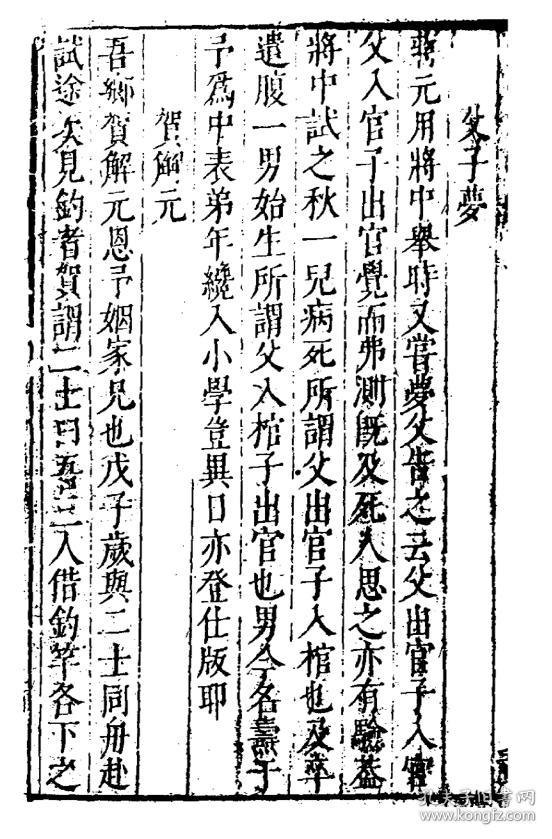 父子夢
蔣元用將中舉時又嘗夢父告之云父出官子入官
父入官子出官覺而弗測既及死人思之亦有驗蓋
將中試之秋一兒病死所謂父出官子入棺也及卒
遺腹一男始生所謂父入棺子出官也男今名壽于
予為中表弟年纔入小學豈異日亦登仕版耶
賀解元
吾鄉賀解元恩予姻家兄也戊子歲與二士同舟赴
試途次見釣者賀謂二士曰吾三人借釣竿各下之
孔夫子旧书网
www.kongfz.com